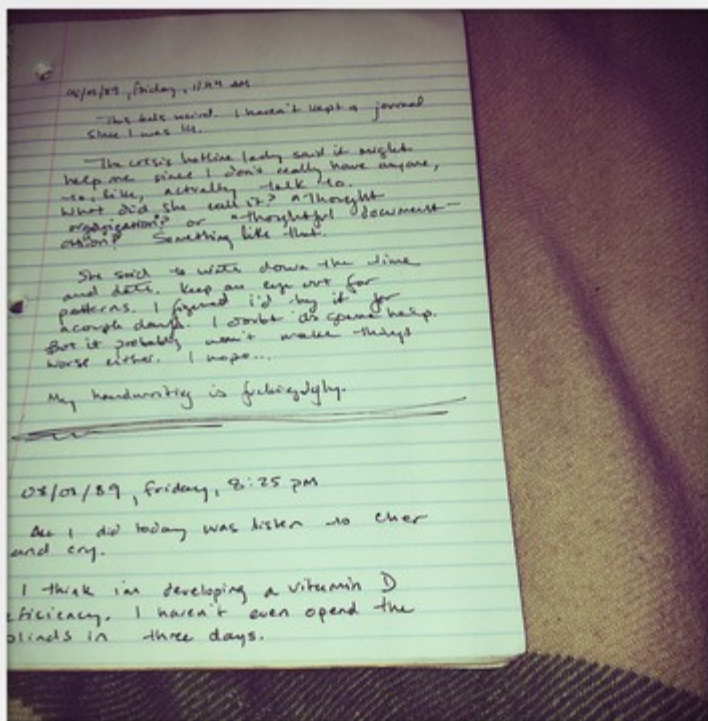 /89, Friday, 11:44 am
This feels weird. I haven't kept a journal
since I was 14.
The crisis hotline lady said it might
help me since I don't really have anyone,
to, like, actually talk to.
What did she call it? "Thought
organization?" or "Thoughtful document-
ation?" Something like that.
She said to write down the time
and date. Keep an eye out for
patterns. I figured i'd try it for
a couple days. I doubt it's gonna help.
But it probably won't make things
worse either. I hope...
My handwriting is fucking ugly.
/89, Friday, 8:25 pm
All I did today was listen to Cher
and cry.
I think im developing a vitamin D
eficiency. I haven't even opend the
blinds in three days.